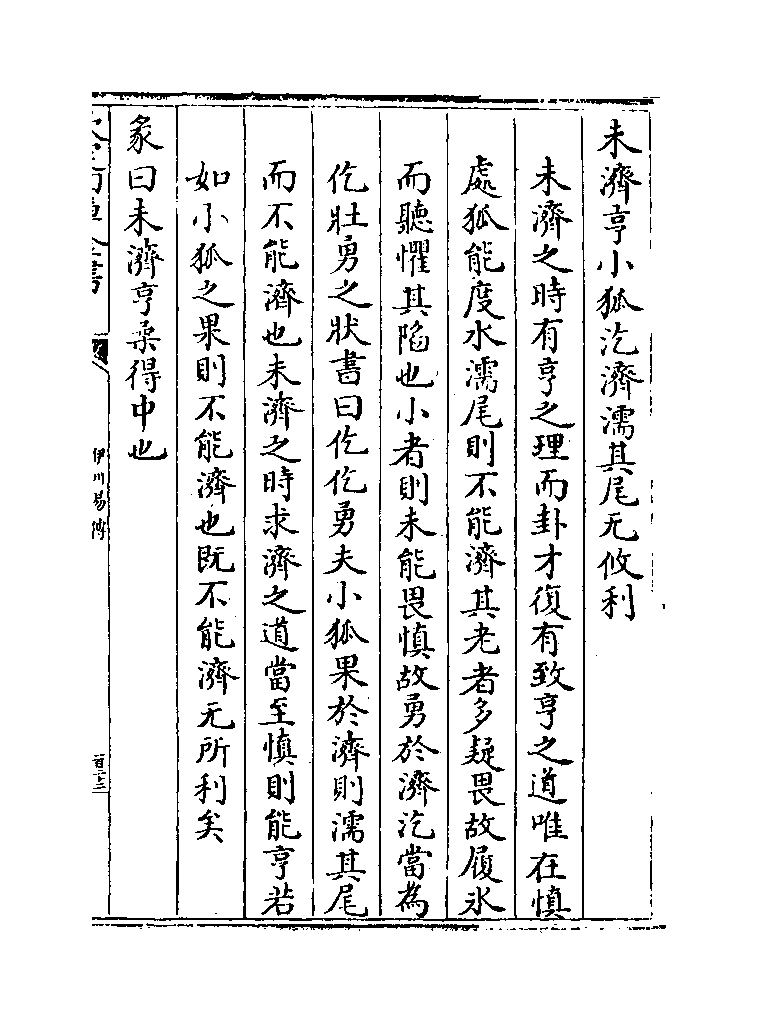 未濟亨小狐汔濟濡其尾无攸利
未濟之時有亨之理而卦才復有致亨之道唯在慎
處狐能度水濡尾則不能濟其老者多疑畏故履冰
而聽懼其陷也小者則未能畏慎故勇於濟汔當為
仡壯勇之狀書曰仡仡勇夫小狐果於濟則濡其尾
而不能濟也未濟之時求濟之道當至慎則能亨若
如小狐之果則不能濟也既不能濟无所利矣
彖曰未濟亨柔得中也
伊川易傳